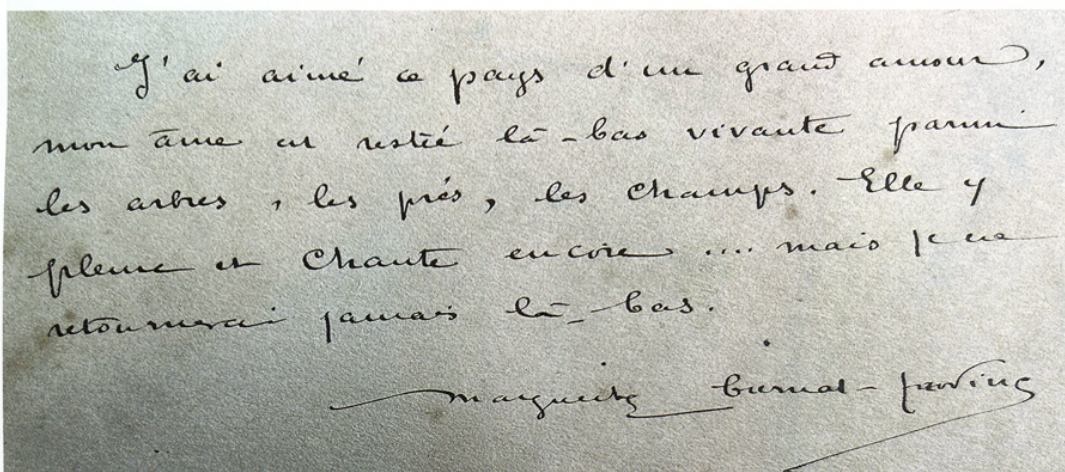 J'ai aimé ce pays d'un grand amour,
mon âme est restée là-bas vivante parmi
les arbres, les prés, les champs. Elle y
pleure et chante encore .... mais je ne
retournerai jamais là-bas.
Marguerite Burnat-Provins